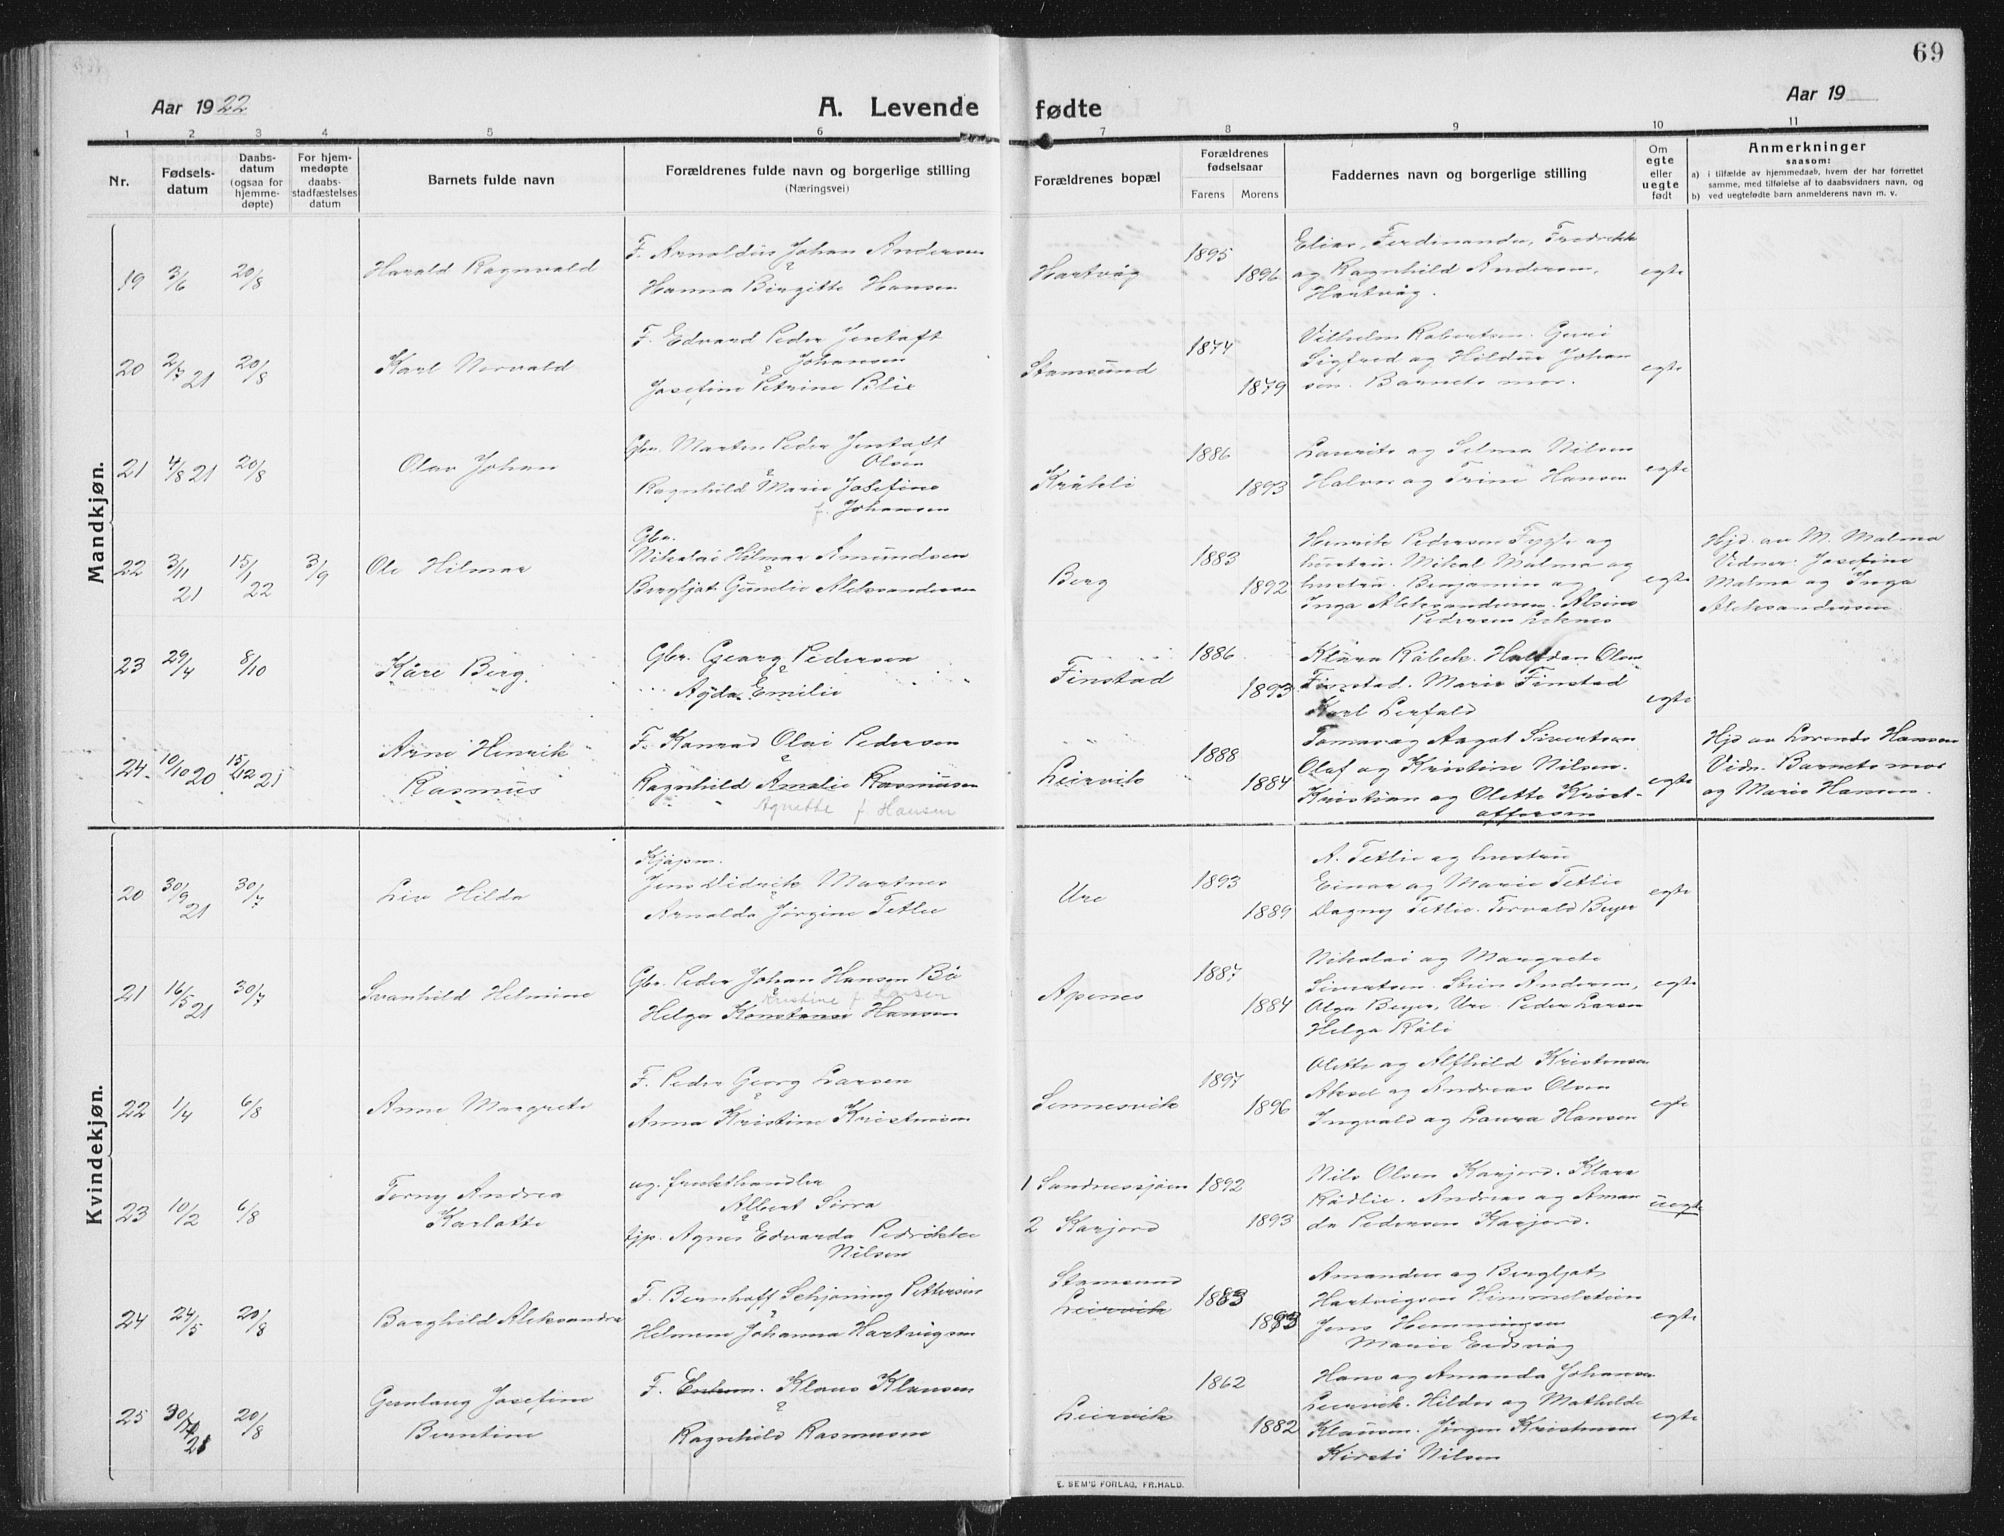 69
Aar 1922
A. Levende fødte
Aar 19
1 2 3 4 5 6 7 8 9 10 11
Nr.
Fødsels-
datum
Daabs-
datum
(ogsaa for
hjemme-
døpte)
For hjem-
medøpte
daabs-
stadfæstelses
datum
Barnets fulde navn
Forældrenes fulde navn og borgerlige stilling
(Næringsvei)
Forældrenes bopæl
Forældrenes
fødselsaar
Farens Morens
Faddernes navn og borgerlige stilling
Om
egte
eller
uegte
født
Anmerkninger
saasom:
a) i tilfælde av hjemmedaab, hvem der har forrettet
samme, med tilføielse af to daabsvidners navn, og
b) ved uegtefødte barn anmelderens navn m. v.
Mandkjøn.
19 3/6 20/8
Harald Ragnvald
F. Arnoldus Johan Andersen
Hanna Birgitte Hansen
Hartvåg
1895
1896
Elias, Ferdinanda, Fredrikke
og Ragnhild Andersen,
Hartvåg.
egte
20 2/7 21 20/8
Karl Norvald
F. Edvard Peder Jentoft
Johansen
&
Josefine Petrine Blix
Stamsund
1874
1879
Vilhelm Robertsen. Guri
Sigfred og Hildur Johan
sen. Barnets mor.
egte
21 4/8 21 20/8
Olav Johan
Gbr. Morten Peder Jentoft
Olsen
&
Ragnhild Marie Josefine
f. Johansen
Kråkli
1886
1893
Laurits og Selma Nilsen
Halvor og Trine Hansen
egte
22 3/11 21 15/1 22 3/9
Ole Hilmar
Gbr.
Nikolai Hilmar Amundsen
&
Bergljot Gunelie Aleksandersen
Berg
1883
1892
Henrik Pedersen Fygle og
hustru. Mikal Malmo og
hustru. Benjamin og
Inga Aleksandersen. Alsine
Pedersen Leknes
egte
Hjd. av M. Malmo
Vidner: Josefine
Malmo og Inga
Aleksandersen
23 29/4 8/10
Kåre Berg.
Gbr. Georg Pedersen
&
Agda Emilie
Finstad
1886
1893
Klara Råbek. Halfdan Olsen
Finstad. Marie Finstad
Karl Lerfald
egte
24 10/10 20 15/12 21
Arne Henrik
Rasmus
F. Konrad Olai Pedersen
&
Ragnhild Amalie Rasmussen
Agnette f. Hansen
Leirvik
1888
1884
Tomas og Aagot Sivertsen
Olaf og Kristine Nilsen.
Kristian og Olette Krist-
offersen
egte
Hjd av Lorends Hansen
Vidn. Barnets mor
og Marie Hansen.
Kvindekjøn.
20 30/9 21 30/7
Liv Hilda
Kjøpm.
Jens Didrik Martnes
&
Arnolda Jørgine Tetlie
Ure
1893
1889
A. Tetlie og hustru
Einar og Marie Tetlie
Dagny Tetlie. Torvald Beyer
egte
21 16/5 21 30/7
Svanhild Helmine
Gbr. Peder Johan Hansen Bø
&
Kristine f. Larsen
Helga Konstanse Hansen
Apenes
1887
1884
Nikolai og Margrete
Sivertsen. Stein Andersen,
Olga Beyer, Ure. Peder Larsen
Helga Råli
egte
22 1/4 6/8
Anne Margrete
F. Peder Georg Larsen
Anna Kristine Kristensen
Sennesvik
1897
1896
Olette og Alfhild Kristensen
Aksel og Andreas Olsen
Ingvald og Laura Hansen
egte
23 10/2 6/8
Torny Andrea
Karlotte
ug. frukthandler
Albert Sörra
&
tjp. Agnes Edvarda Pedrikke
Nilsen
1 Sandnessjøen
2 Karjord
1892
1893
Nils Olsen Karjord. Klara
Rødlie. Andreas og Aman
da Pedersen Karjord.
uegte
24 24/5 20/8
Borghild Aleksandra
F. Bernhoff Schjøning Pettersen
&
Helmine Johanna Hartvigsen
Stamsund
Leirvik
1883
1893
Amandus og Bergljot
Hartvigsen Himmelstein
Jens Hemmingsen
Marie Eidsvåg
egte
25 30/7 21 20/8
Gunlaug Josefine
Berntine
F. Enkem. Klaus Klausen
&
Ragnhild Rasmussen
Leirvik
1862
1882
Hans og Amanda Johansen
Leirvik. Hildor og Mathilde
Klausen. Jørgen Kristensen
Kirsti Nilsen
egte
E. SEM'S FORLAG, FR.HALD.